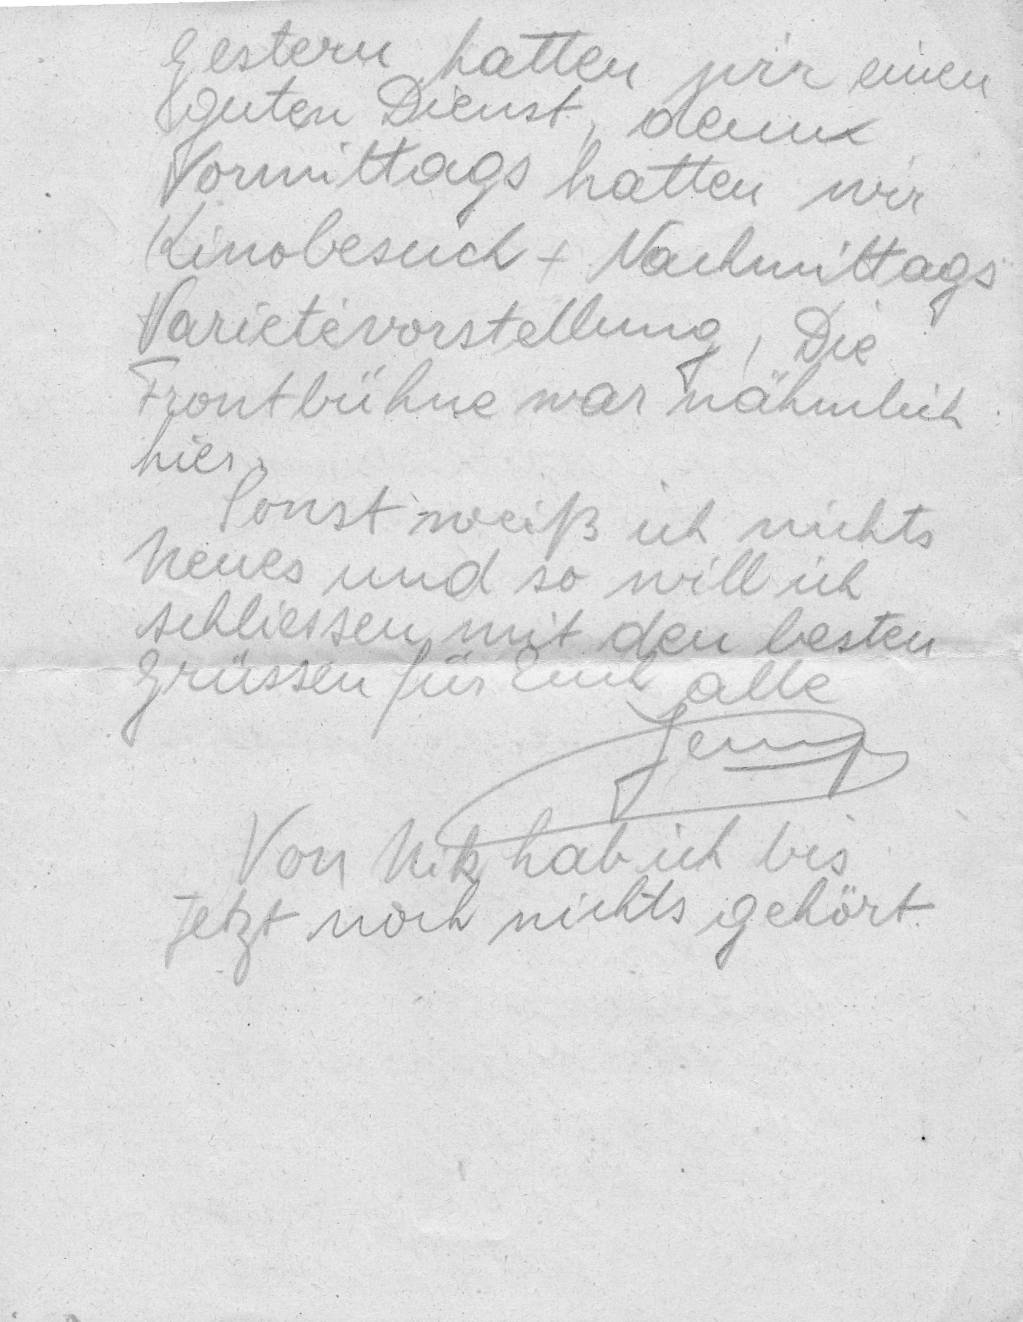 Gestern hatten wir einen
guten Dienst, denn
Vormittags hatten wir
Kinobesuch + Nachmittags
Varietévorstellung, Die
Frontbühne war nähmlich
hier.
Sonst weiß ich nichts
Neues und so will ich
schliessen mit den besten
Grüssen für Euch alle
Von hab ich bis
Jetzt noch nichts gehört.